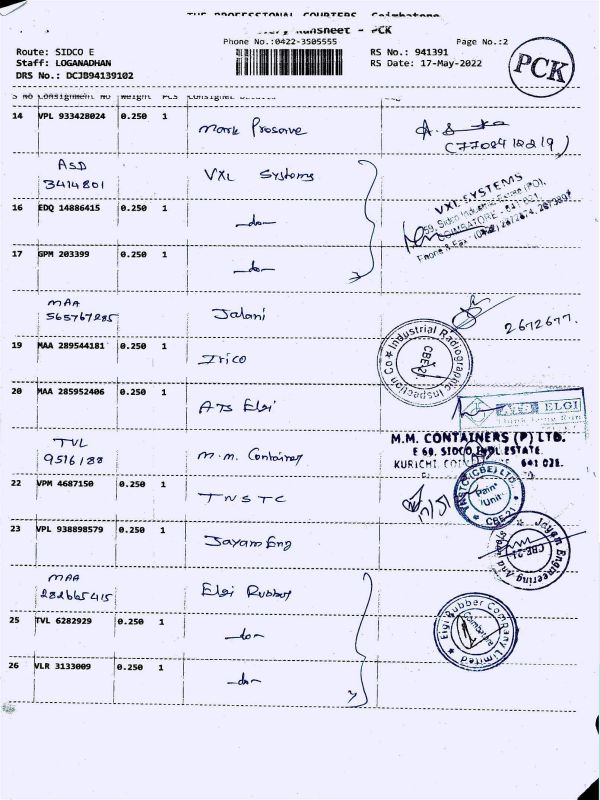 THE PROFESSIONAL COURIERS, Coimbatore
Runsheet - PCK
Phone No.:0422-3505555
Page No.:2
Route: SIDCO E
Staff: LOGANADHAN
DRS No.: DCJB94139102
RS No.: 941391
RS Date: 17-May-2022
PCK
S No Consignment No Weight PCS Consignee
14 VPL 933428024 0.250 1 Mark Prosave
ASD
3414801 VXL Systems
VXL SYSTEMS
59, Sidco Industrial Estate (PO),
COIMBATORE - 641 021.
16 EDQ 14886415 0.250 1 -do-
17 GPM 203399 0.250 1 -do-
MAA
565767285 Jalani
2672677.
19 MAA 289544181 0.250 1 Irico
Industrial Radiographic Inspection Co
CBE-21
20 MAA 285952406 0.250 1 ATS Elgi
ELGI
TVL
9516188 M.M. Container
M.M. CONTAINERS (P) LTD.
E 60, SIDCO INDL.ESTATE.
KURICHI, 641 021.
22 VPM 4687150 0.250 1 TNSTC
17/5/
TNSTC (CBE) LTD
Paint Unit
CBE-21
23 VPL 938898579 0.250 1 Jayam Eng
Jayam Engineering
CBE-21
MAA
282665415 Elgi Rubber
25 TVL 6282929 0.250 1 -do-
Elgi Rubber Company Limited
Coimbatore
26 VLR 3133009 0.250 1 -do-